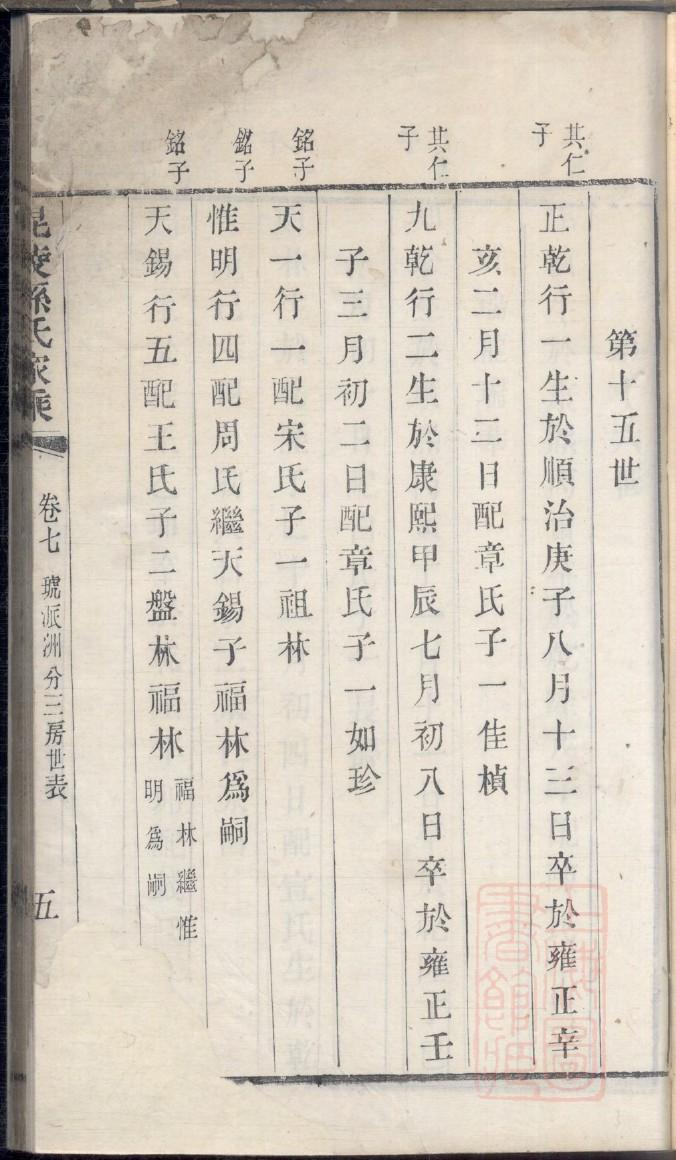 第十五世
其仁
子
正乾行一生於順治庚子八月十三日卒於雍正辛
亥二月十二日配章氏子一佳楨
其仁
子
九乾行二生於康熙甲辰七月初八日卒於雍正壬
子三月初二日配章氏子一如珍
銘子
天一行一配宋氏子一祖林
銘子
惟明行四配周氏繼天錫子福林爲嗣
銘子
天錫行五配王氏子二盤林福林
福林繼惟
明爲嗣
毘陵孫氏家乘
卷七
號派洲分三房世表
五